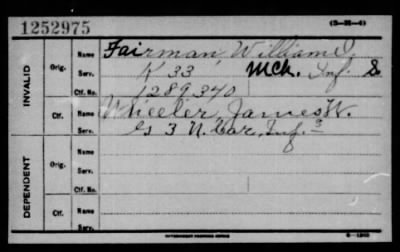 1252975 (3-251-4)
INVALID
Orig. Name Fairman, William
Serv. K 33 Mch. Inf. S
Ctf. No. 1289340
Ctf. Name Wheeler, James W.
Serv. G 3 N. Car. Inf.
DEPENDENT
Orig. Name
Serv.
Ctf. No.
Ctf. Name
Serv.